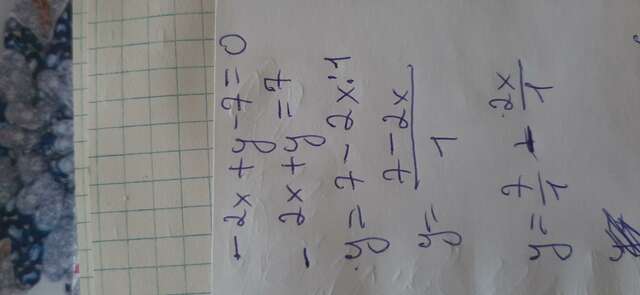 -2x+y-7=0
-2x+y=7
y=7-2x:1
y= \frac{7-2x}{1}
y= \frac{7}{1} - \frac{2x}{1}
y